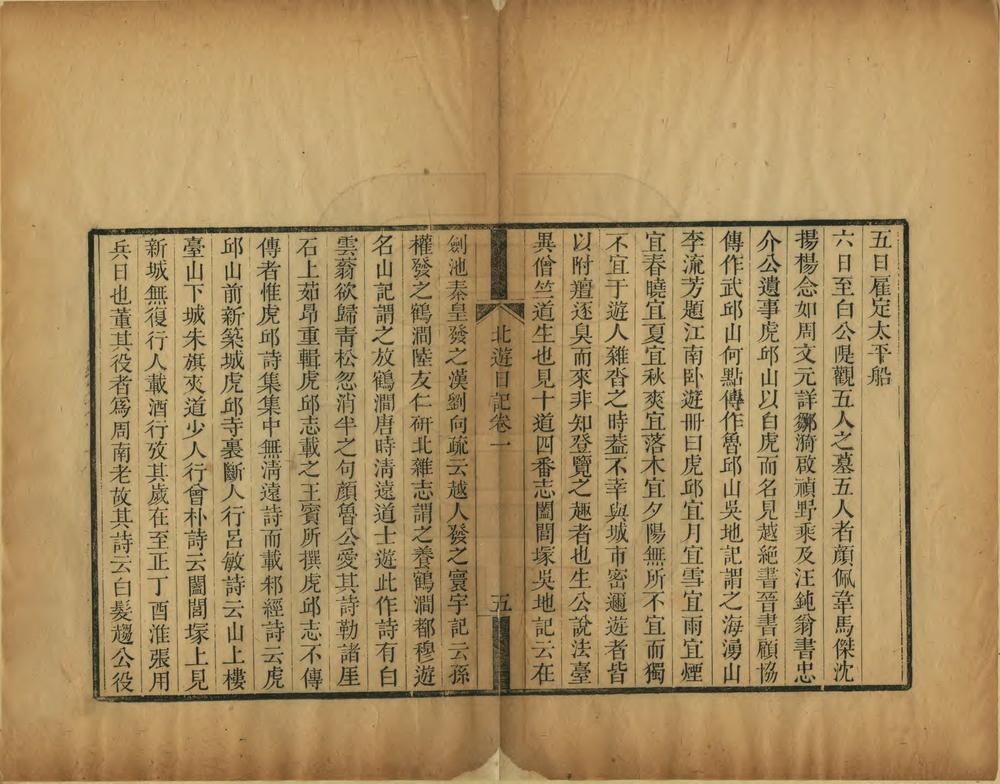 五日雇定太平船
六日至白公隄觀五人之墓五人者顏佩韋馬傑沈
揚楊念如周文元詳鄒漪啟禎野乘及汪鈍翁書忠
介公遺事虎邱山以白虎而名見越絕書晉書顧協
傳作武邱山何點傳作魯邱山吳地記謂之海湧山
李流芳題江南臥遊冊曰虎邱宜月宜雪宜雨宜煙
宜春曉宜夏宜秋爽宜落木宜夕陽無所不宜而獨
不宜于遊人雜沓之時葢不幸與城市密邇遊者皆
以附羶逐臭而來非知登覽之趣者也生公說法臺
異僧竺道生也見十道四番志闔閭塚吳地記云在
北遊日記卷一
五
劍池秦皇發之漢劉向疏云越人發之寰宇記云孫
權發之鶴澗陸友仁研北雜志謂之養鶴澗都穆遊
名山記謂之放鶴澗唐時清遠道士遊此作詩有白
雲蓊欲歸青松忽消半之句顏魯公愛其詩勒諸厓
石上茹昂重輯虎邱志載之王賓所撰虎邱志不傳
傳者惟虎邱詩集集中無清遠詩而載郑經詩云虎
邱山前新築城虎邱寺裏斷人行呂敏詩云山上樓
臺山下城朱旗夾道少人行曾朴詩云闔閭塚上見
新城無復行人載酒行攷其歲在至正丁酉淮張用
兵日也董其役者爲周南老故其詩云白髮趨公役